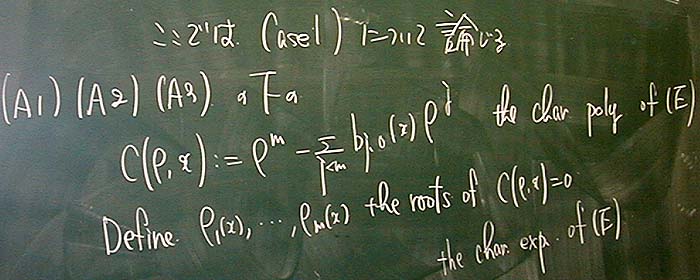 ここでは Case1) について論じる
(A1) (A2) (A3) の下の
C(ρ,x) := ρ^m − Σ_{j<m} b_{j,0}(x) ρ^j the char poly of (E)
Define ρ_1(x), ⋯, ρ_m(x) the roots of C(ρ,x)=0
the char. exp. of (E)